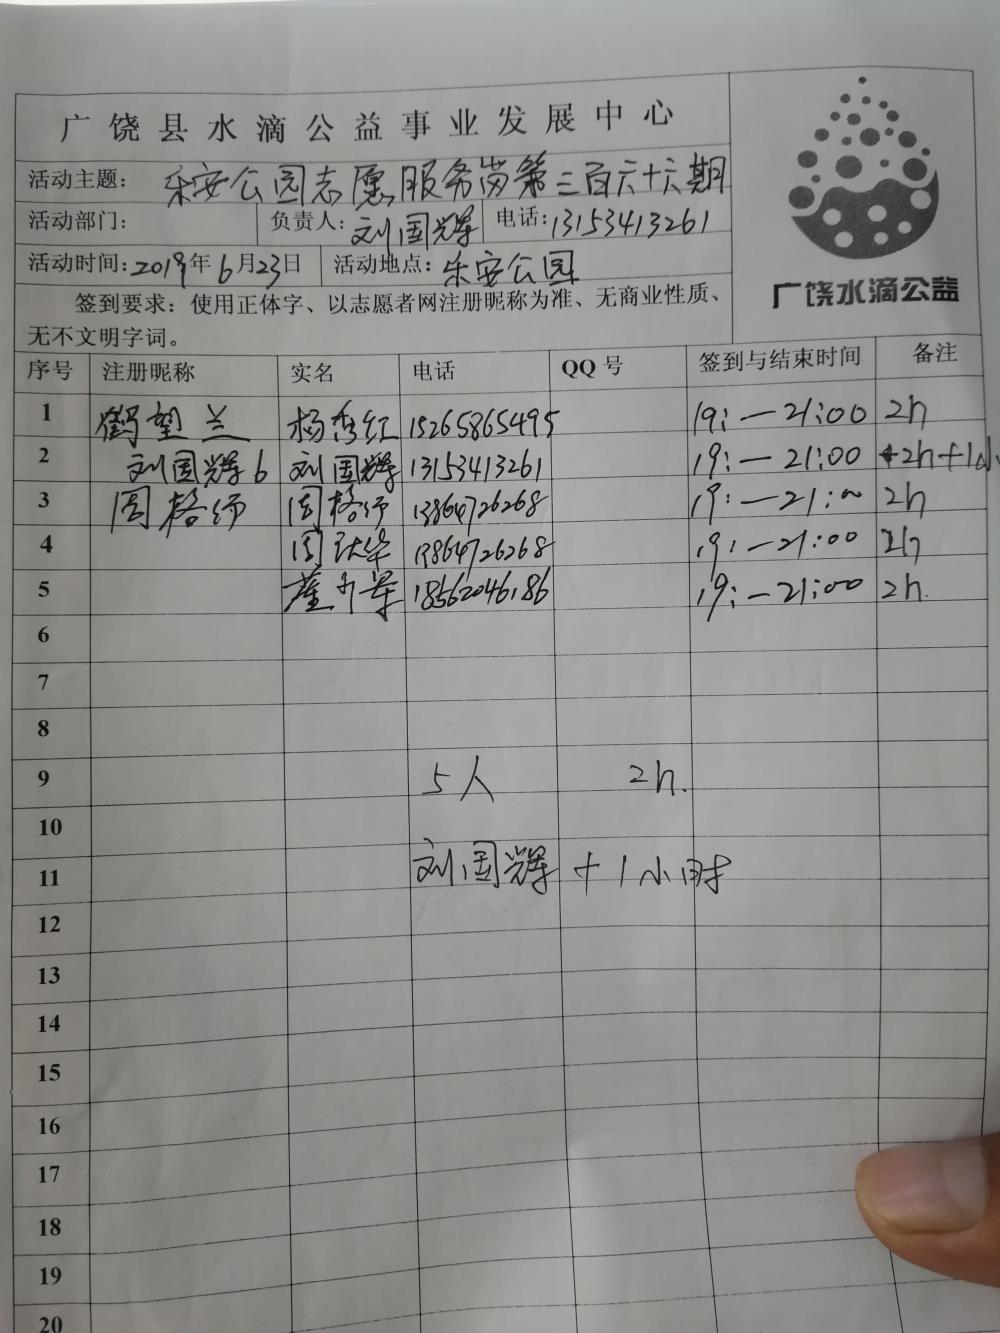 广饶县水滴公益事业发展中心
活动主题: 乐安公园志愿服务岗第三百六十六期
活动部门: 负责人: 刘国辉 电话: 13153413261
活动时间: 2019年6月23日 活动地点: 乐安公园
签到要求: 使用正体字、以志愿者网注册昵称为准、无商业性质、
无不文明字词。
广饶水滴公益
序号 注册昵称 实名 电话 QQ号 签到与结束时间 备注
1 鹤望兰 杨秀红 15265865495 19:—21:00 2h
2 刘国辉6 刘国辉 13153413261 19:—21:00 2h+1小
3 周格 周格 13864726268 19:—21:00 2h
4 周 13864726268 19:—21:00 2h
5 董 18562046186 19:—21:00 2h.
6
7
8
9 5人 2h.
10
11 刘国辉 +1小时
12
13
14
15
16
17
18
19
20